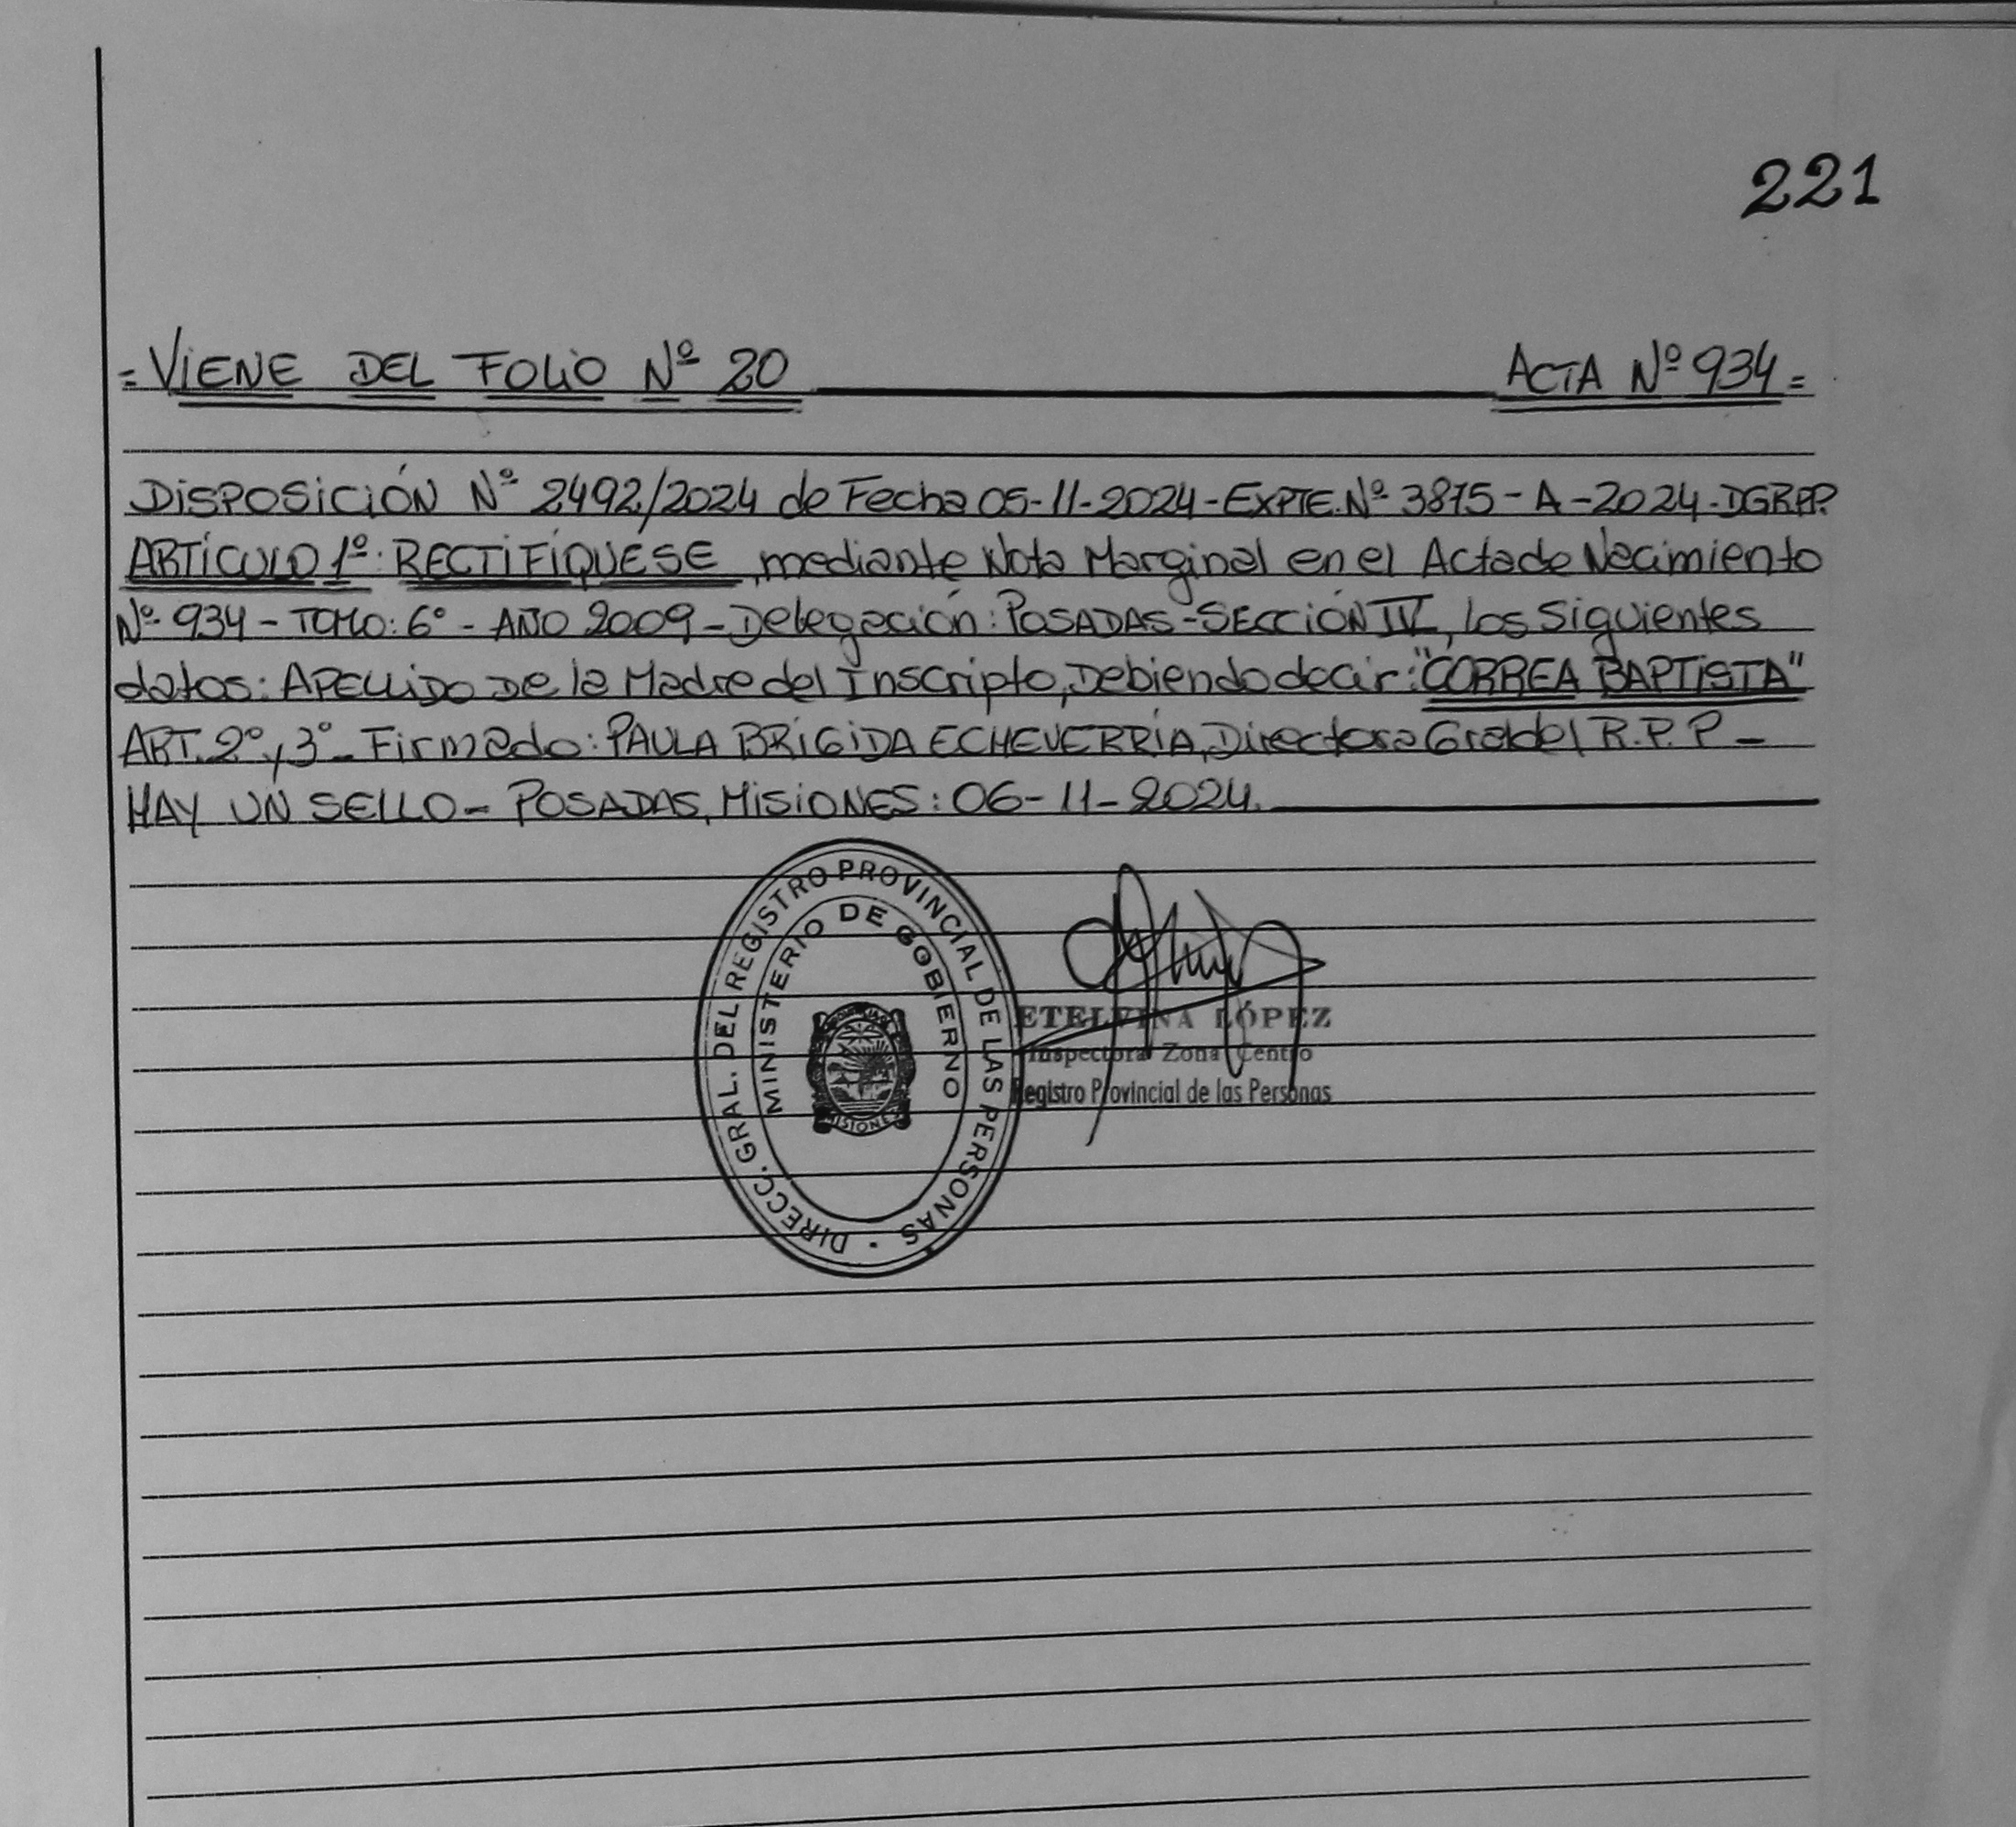 221
= VIENE DEL FOLIO Nº 20 ACTA Nº 934 =
DISPOSICIÓN Nº 2492/2024 de Fecha 05-11-2024 - EXPTE. Nº 3875 - A - 2024 - DGRPP.
ARTÍCULO 1º: RECTIFÍQUESE, mediante Nota Marginal en el Acta de Nacimiento
Nº 934 - TOMO: 6º - AÑO 2009 - Delegación: POSADAS - SECCIÓN IV, los Siguientes
datos: APELLIDO De la Madre del Inscripto, Debiendo decir: "CORREA BAPTISTA"
ART. 2º y 3º - Firmado: PAULA BRÍGIDA ECHEVERRÍA, Directora Gral del R.P.P -
HAY UN SELLO - POSADAS, MISIONES: 06-11-2024.
DIRECC. GRAL. DEL REGISTRO PROVINCIAL DE LAS PERSONAS
MINISTERIO DE GOBIERNO
MISIONES
ETELVINA LÓPEZ
Inspectora Zona Centro
Registro Provincial de las Personas